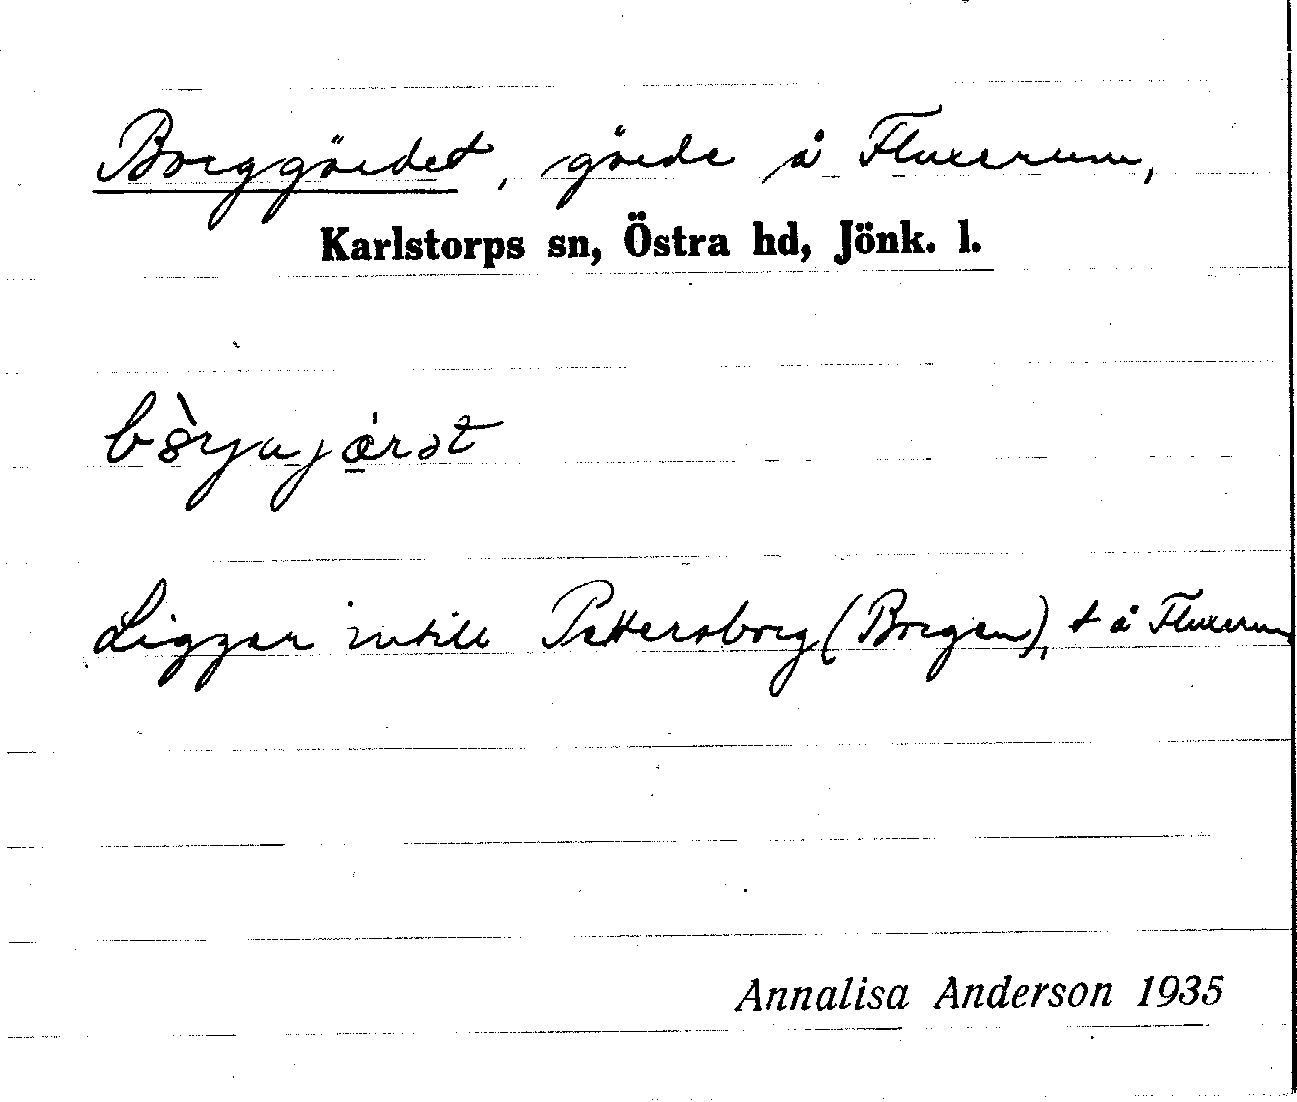 Borggärdet, gärde å Fluxerum,
Karlstorps sn, Östra hd, Jönk. l.
Ligger intill Pettersborg (Borgen), t å Fluxerum
Annalisa Anderson 1935